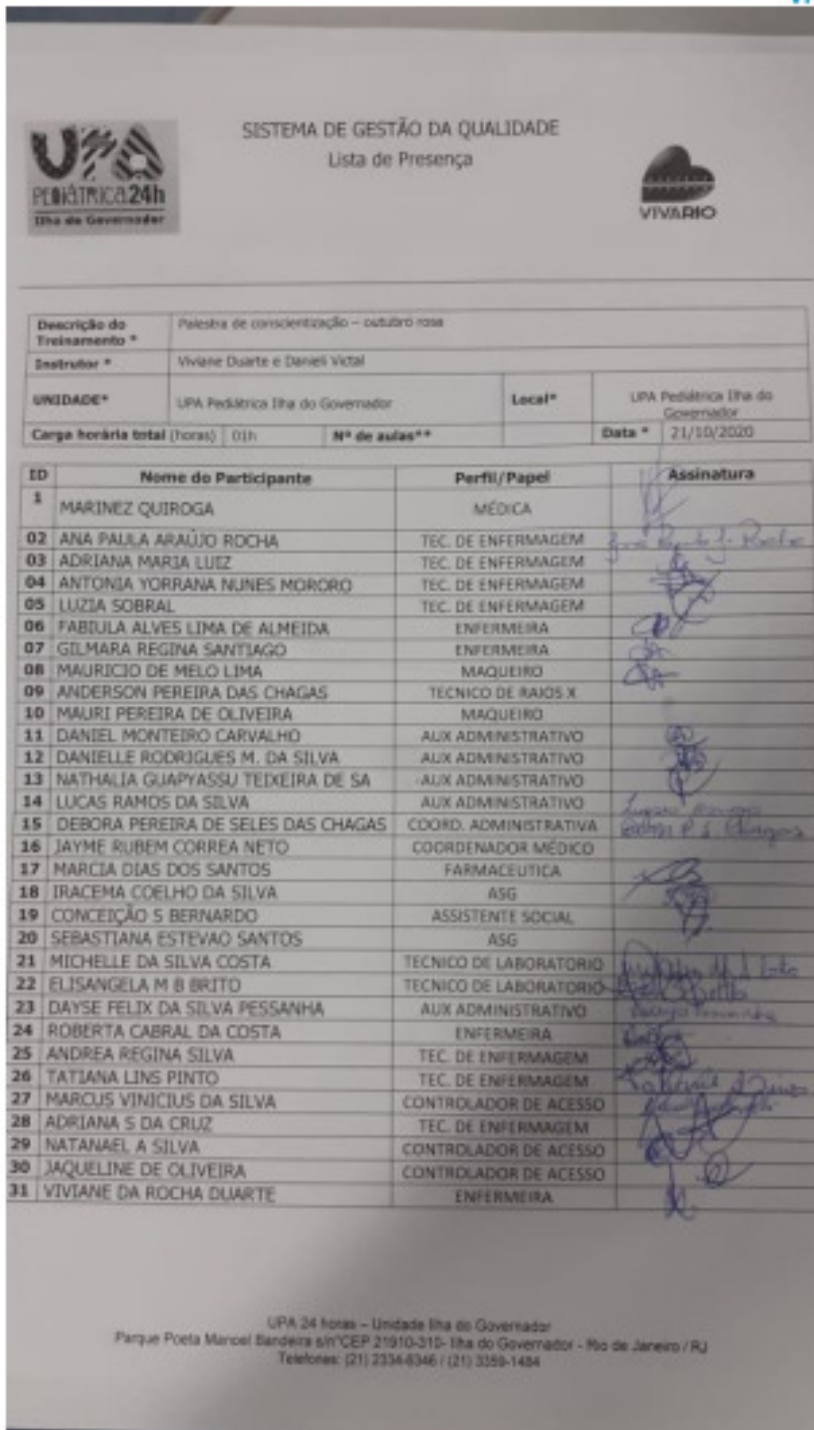 UPA
PEDIÁTRICA 24h
Ilha do Governador
SISTEMA DE GESTÃO DA QUALIDADE
Lista de Presença
VIVARIO
Descrição do Treinamento * Palestra de conscientização – outubro rosa
Instrutor * Viviane Duarte e Danieli Victal
UNIDADE* UPA Pediátrica Ilha do Governador Local* UPA Pediátrica Ilha do Governador
Carga horária total (horas) 01h Nº de aulas** Data * 21/10/2020
ID Nome do Participante Perfil/Papel Assinatura
1 MARINEZ QUIROGA MÉDICA
02 ANA PAULA ARAÚJO ROCHA TEC. DE ENFERMAGEM
03 ADRIANA MARIA LUIZ TEC. DE ENFERMAGEM
04 ANTONIA YORRANA NUNES MORORO TEC. DE ENFERMAGEM
05 LUZIA SOBRAL TEC. DE ENFERMAGEM
06 FABIULA ALVES LIMA DE ALMEIDA ENFERMEIRA
07 GILMARA REGINA SANTIAGO ENFERMEIRA
08 MAURICIO DE MELO LIMA MAQUEIRO
09 ANDERSON PEREIRA DAS CHAGAS TECNICO DE RAIOS X
10 MAURI PEREIRA DE OLIVEIRA MAQUEIRO
11 DANIEL MONTEIRO CARVALHO AUX ADMINISTRATIVO
12 DANIELLE RODRIGUES M. DA SILVA AUX ADMINISTRATIVO
13 NATHALIA GUAPYASSU TEIXEIRA DE SA AUX ADMINISTRATIVO
14 LUCAS RAMOS DA SILVA AUX ADMINISTRATIVO
15 DEBORA PEREIRA DE SELES DAS CHAGAS COORD. ADMINISTRATIVA
16 JAYME RUBEM CORREA NETO COORDENADOR MÉDICO
17 MARCIA DIAS DOS SANTOS FARMACEUTICA
18 IRACEMA COELHO DA SILVA ASG
19 CONCEIÇÃO S BERNARDO ASSISTENTE SOCIAL
20 SEBASTIANA ESTEVAO SANTOS ASG
21 MICHELLE DA SILVA COSTA TECNICO DE LABORATORIO
22 ELISANGELA M B BRITO TECNICO DE LABORATORIO
23 DAYSE FELIX DA SILVA PESSANHA AUX ADMINISTRATIVO
24 ROBERTA CABRAL DA COSTA ENFERMEIRA
25 ANDREA REGINA SILVA TEC. DE ENFERMAGEM
26 TATIANA LINS PINTO TEC. DE ENFERMAGEM
27 MARCUS VINICIUS DA SILVA CONTROLADOR DE ACESSO
28 ADRIANA S DA CRUZ TEC. DE ENFERMAGEM
29 NATANAEL A SILVA CONTROLADOR DE ACESSO
30 JAQUELINE DE OLIVEIRA CONTROLADOR DE ACESSO
31 VIVIANE DA ROCHA DUARTE ENFERMEIRA
UPA 24 horas – Unidade Ilha do Governador
Parque Poeta Manoel Bandeira s/nºCEP 21910-310- Ilha do Governador - Rio de Janeiro / RJ
Telefones: (21) 2334-6346 / (21) 3359-1484